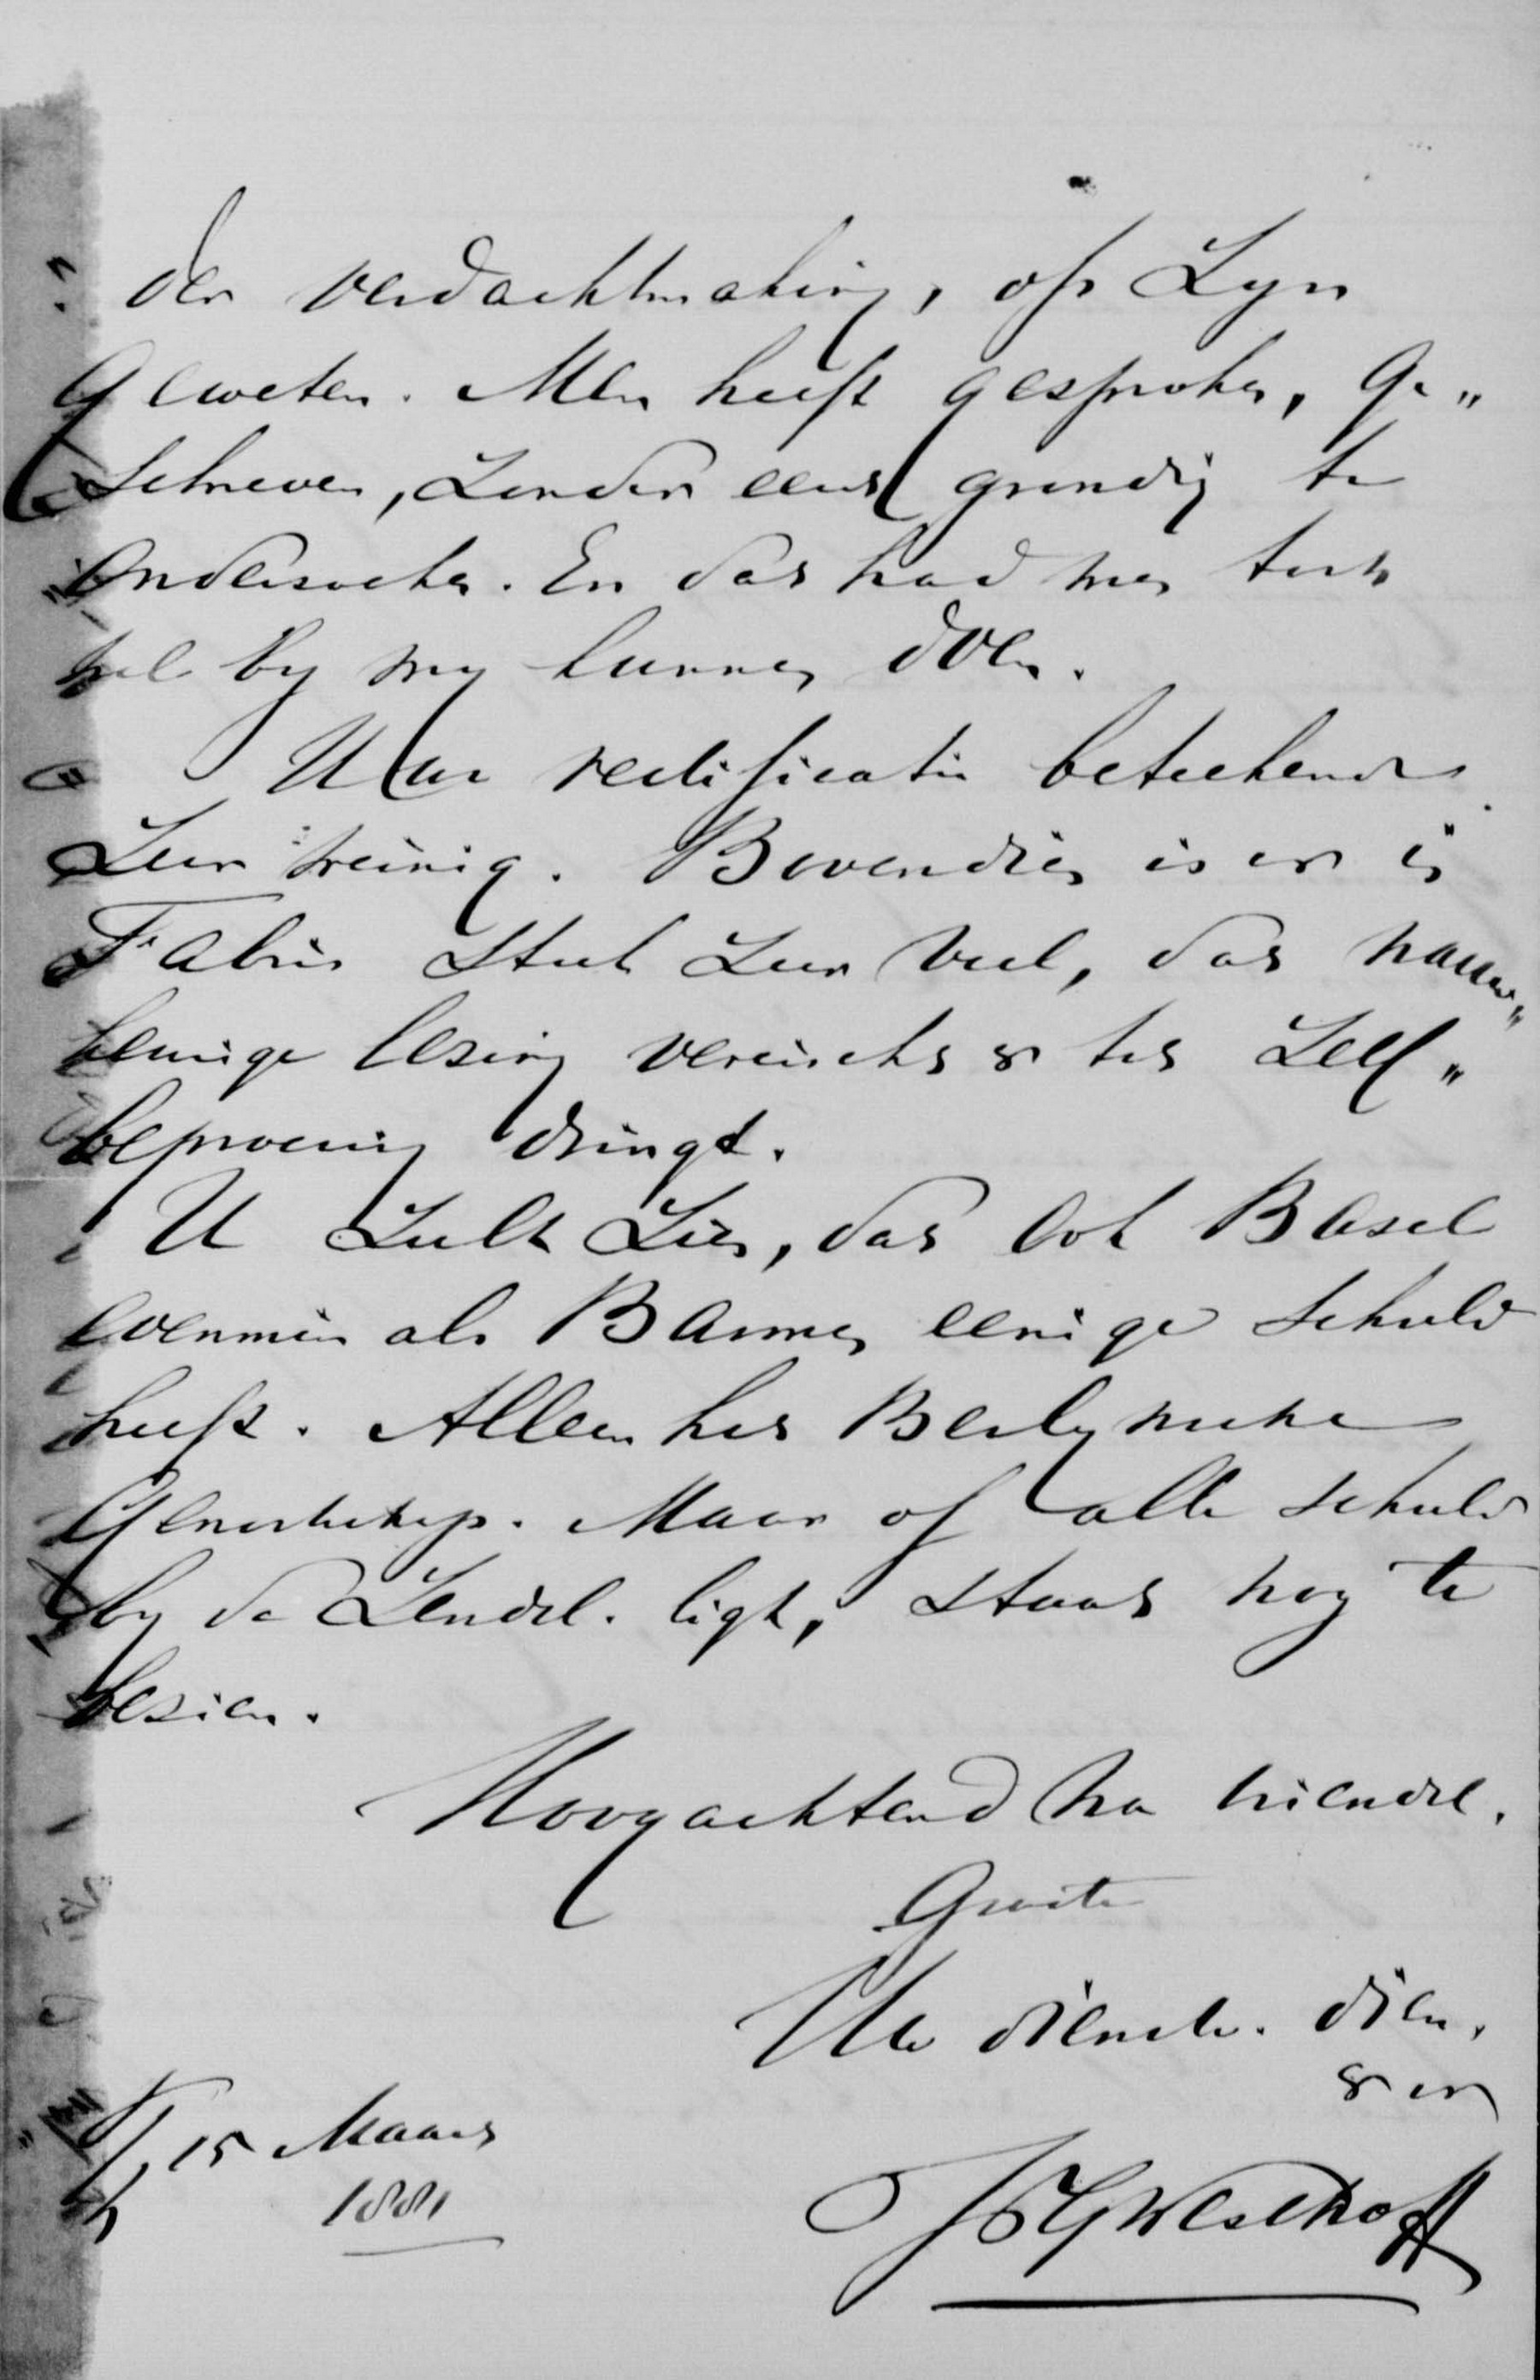 der verdachtmaking, op Zyn
geweten. Men heeft gesproken, ge„
schreven, Zonder eerst grondig te
onderzoeken. En dat had men toch
wel by my kunnen doen.
Uwe rectificatie beteekende
Zeer weinig. Bovendien is er in
Fabius Stuk Zeer veel, dat nauw„
keurige lezing vereischt & tot Zelf„
beproeving dringt.
U Zult Zien, dat ook Basel
evenmin als Barmen eenige schuld
heeft. Alleen het Berlynsche
Genootschap. Maar of alle schuld
by de Zendel. ligt, staat nog te
bezien.
Hoogachtend na vriendel.
Groete
Uw dienstv. dien.
& er
15 Maart
1881
Westhoff